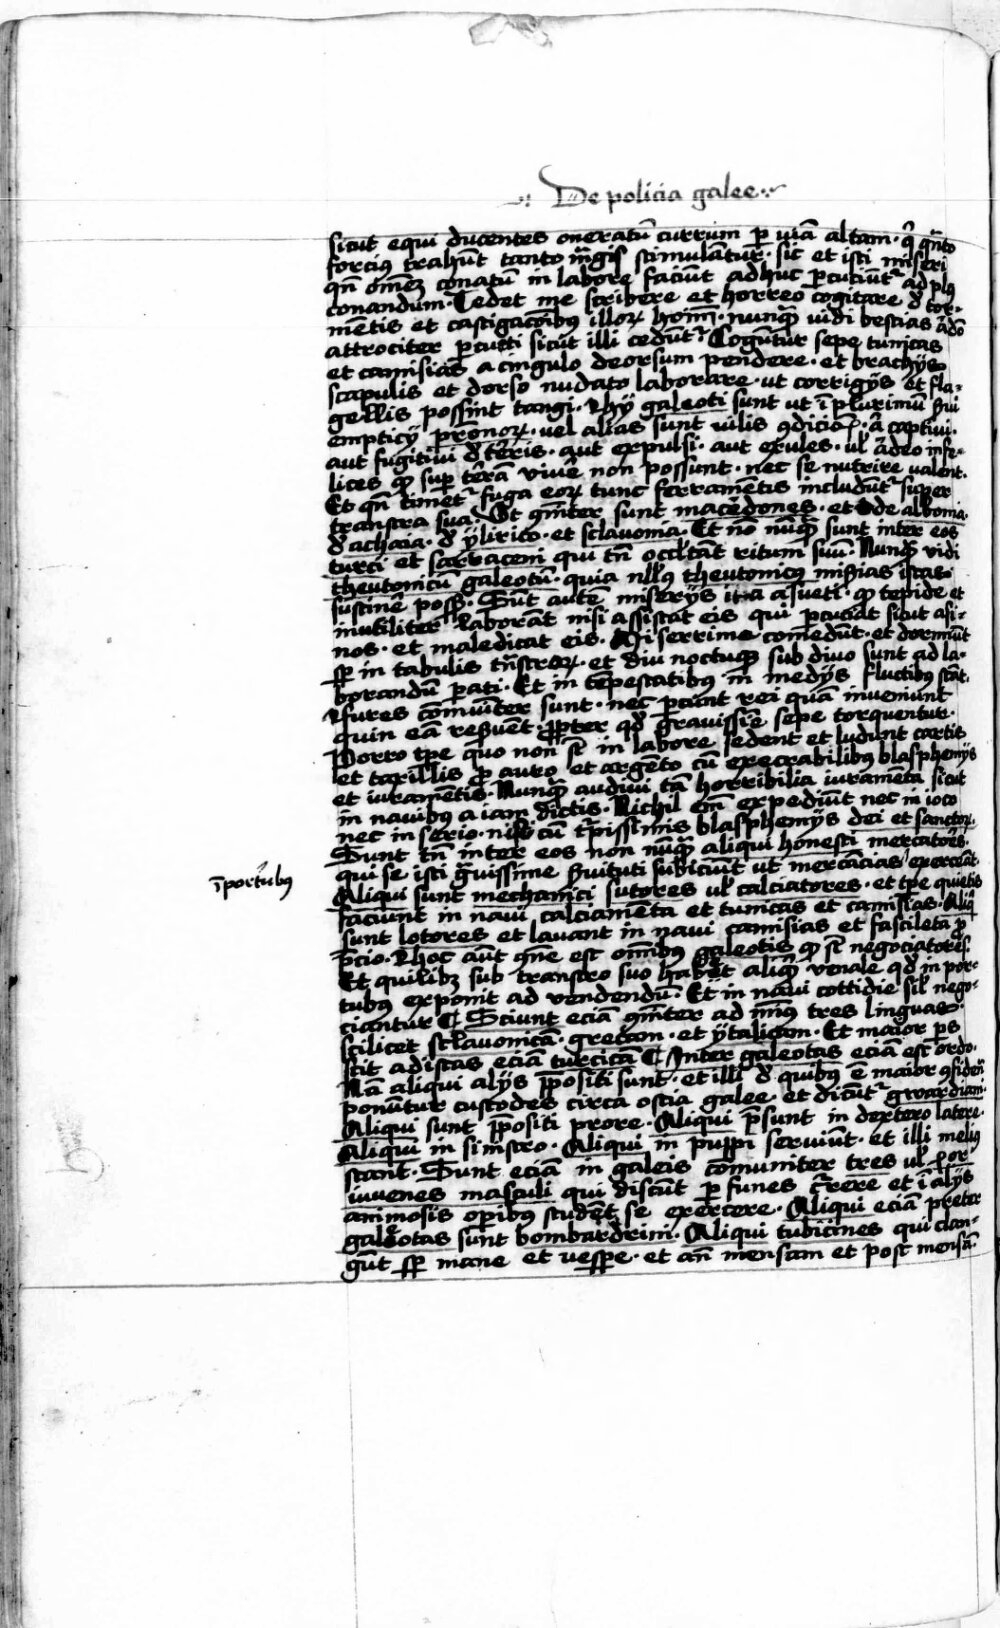 De policia galee
sicut equi ducentes oneratū currum ꝑ viā altam · qͥ qn̄to
forcius trahūt tanto mͣgis stimulātur · sic et isti miseri
qn̄ om̄eꝫ conatū in labore faciūt adhuc ꝑcuciūtᷣ ad plꝰ
conandum · Tedet me scribere et horreo cogitare đ tor-
mētis et castigacōibus illoꝝ hom̄ · nunqͣꝫ vidi bestias adeo
attrociter ꝑcuti sicut illi cedūtᷣ · Cogūtur sepe tunicas
et camisias a cingulo deorsum pendere · et brachijs
scapulis et dorso nudato laborare · ut corrigijs et fla-
gellis possint tangi · Hij galeoti sunt ut ī plurimū ẜui
empticij pr̄onoꝝ · vel alias sunt vilis ꝯdicionis · aut captivi ·
aut fugitivi đ terris · aut expulsi · aut exules · vł adeo infe-
lices ꝙ suꝑ terrā vivē non possunt · nec se nutrire valent ·
Et qn̄ timetᷣ fuga eoꝝ tunc ferramētis includūtᷣ super
transtra sua · Ut gn̄iter sunt macedones · et de albania ·
đ achaia · đ ylirico · et sclavonia · Et nō nūqͣꝫ sunt inter eos
turci et sarraceni qui tn̄ occltāt ritum suū · Nunqͣꝫ vidi
theutonicū galeotū · quia nllꝰ theutonicꝰ miẜias istas
sustinē poss̄ꝫ · Sūt autē miserijs ita asueti · ꝙ tepide et
inutiliter laborāt nisi assistat eis qui ꝑcuciat sicut asi-
nos · et maledicat eis · Miserrime comedūt · et dormiūt
sꝑ in tabulis tn̄stroꝝ · et diu noctuqꝫ sub divo sunt ad la-
borandū ꝑati · Et in tēpestatibus in medijs fluctibus stāt ·
fures cōmūiter sunt · nec ꝑcūt rei quā inveniunt
quin eā refūent · ꝓpter qđ gravissīe sepe torquentur ·
Porro tꝑe quo non sūt in labore sedent et ludunt cartis
et taxillis ꝓ auro et argēto cū execrabilibus blasphemijs
et iuramētis · Nunqͣꝫ audivi tā horribilia iuramēta sicut
in navibus a iam dictis · Nichil em̄ expediūt nec in ioco
nec in serio · nisi cū tᷣpissimis blasphemijs dei et sanctoꝝ ·
Sunt tn̄ inter eos non nūqͣꝫ aliqui honesti mercatores ·
qui se isti gͣvissime ẜvituti subiciūt ut mercācias exerceāt ·
īportubus
Aliqui sunt mechanici sutores vł calciatores · et tꝑe quietis
faciunt in navi calciamēta et tunicas et camisias · Aliqͥ
sunt lotores et lavant in navi camisias et fascileta ꝓ
p̄cio · Hoc aūt qn̄e est om̄ibus galeotis ꝙ sūt negociatores ·
Et quilibꝫ sub transtro suo habet aliqͥd venale qđ in por-
tubus exponit ad vendendū · Et in navi cottidie siľ nego-
ciantur ¶ Sciunt eciā gn̄iter ad minꝰ tres linguas
scilicet sclavonicā · grecam · et ytalicam · Et maior ꝑs
scit ad istas eciā turcicā ¶ Inter galeotas eciā est ordo ·
Nā aliqui alijs p̄positi sunt · et illi đ quibus ē maior ꝯfidētia
ponūtur custodes circa ostia galee et dicūtᷣ gwardiani ·
Aliqui sunt p̄positi prore · Aliqui p̄sunt in dextero latere ·
Aliqui in sinistro · Aliqui in puppi serviūt · et illi meliꝰ
stant · Sunt eciā in galeis cōmuniter tres vł
iuvenes masculi qui discūt ꝑ funes cᷣrere et ī alijs
animosis oꝑibus student se exercere · Aliqui eciā preter
galeotas sunt bombardrini · Aliqui tubicines qui clan-
gūt sꝑ mane et vesꝑe · et an̄ mensam et post mensā ·